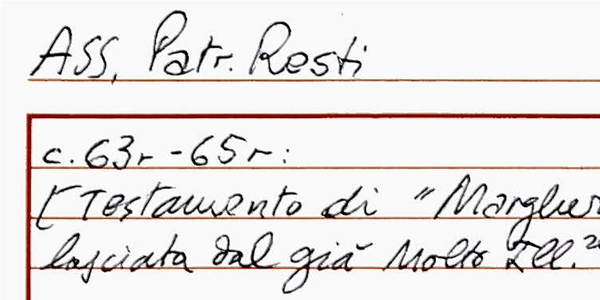 ASS, Patr. Resti
c. 63r - 65r:
[Testamento di "Margher
lasciata dal già Molto Ill.